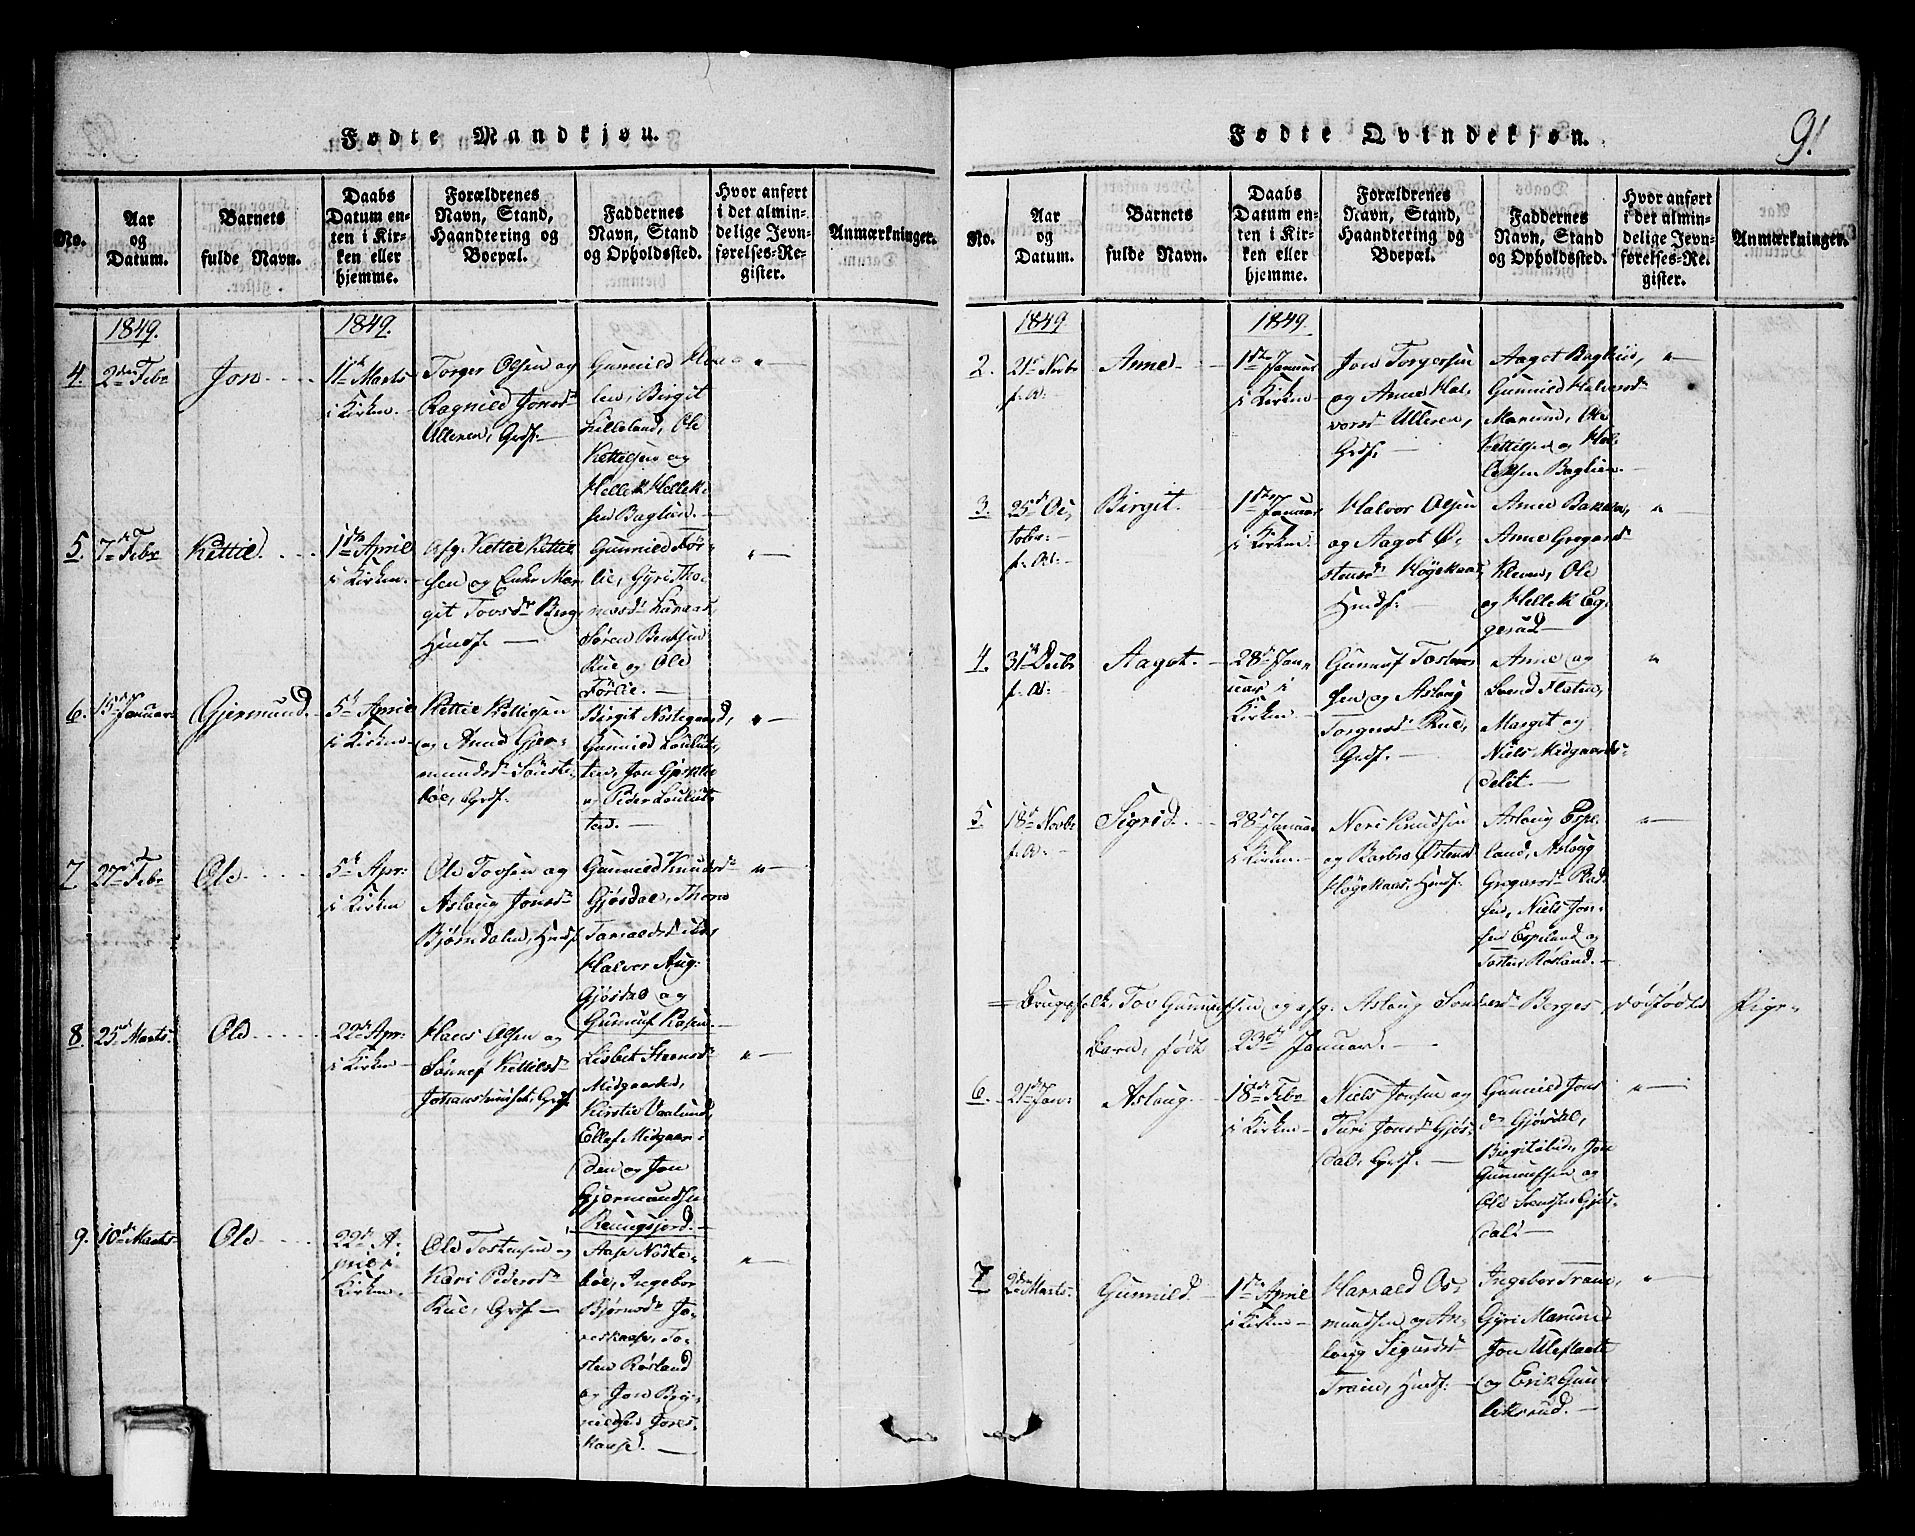 Fødte Mandkjøn.
No.
Aar
og
Datum.
Barnets
fulde Navn.
Daabs
Datum en-
ten i Kir-
ken eller
hjemme.
Forældrenes
Navn, Stand,
Haandtering og
Boepæl.
Faddernes
Navn, Stand
og Opholdssted.
Hvor anført
i det almin-
delige Jevn-
førelses-Re-
gister.
Anmærkninger.
1849.
1849.
4.
2den Febr
Jon
11te Marts
i Kirken.
Torger Olsen og
Ragnild Jonsdr
Ulleren, Grdf.
Gunnild
Birgit
Lilleland, Ole
Kettilsen og
Hellek Hellek-
sen Baglien.
"
5.
7de Febr
Kettil.
1ste April
i Kirken.
Afg. Kettil Kettil-
sen og Enke Mar-
git Tovsdr Berg,
Huusf.
Gunnild Før-
lie, Gyri Tho-
Søren Bentsen
Rue og Ole
Førlie.
"
6.
15de Januar
Gjermund.
5te April
i Kirken
Kettil Kettilsen
og Anne Gjer-
mundsdr Sønste-
bøe, Grdf.
Birgit Nostegaard,
Gunnild Louluts-
ten, Jon
og Peder Louluts-
ten.
"
7
27de Febr
Ole
5te Apr:
i Kirken
Ole Tovsen og
Aslaug Jonsdr
Bjørndalen, Huusf.
Gunnild Knudsdr
Gjøsdal, Thone
Halvor Aug:
Gjøsdal og
Gunnuf Rosen.
"
8.
25de Marts
Ole
22de Apr:
i Kirken
Hans Olsen og
Sønnef Kettilsdr
Grdf
Lisbet
Midgaarden,
Kirstie Vaalund,
Ellef Midgaar-
den og Jon
Gjermundsen
Rengsjord.
"
9.
10de Marts
Ole
22de A-
pril i
Kirken.
Ole Tostensen og
Kari Pedersdr
Rue, Grdf.
Aase Nöste-
böe, Ingebor
Bjørnsdr Jo-
To-
sten Rosland
og Jon
Jores-
kaase.
"
Fødte Qvindekjøn.
91
No.
Aar
og
Datum.
Barnets
fulde Navn.
Daabs
Datum en-
ten i Kir-
ken eller
hjemme.
Forældrenes
Navn, Stand,
Haandtering og
Boepæl.
Faddernes
Navn, Stand
og Opholdssted.
Hvor anført
i det almin-
delige Jevn-
førelses-Re-
gister.
Anmærkninger.
1849
1849.
2.
21de Novbr
f. A:
Anne
1ste Januar
i Kirken
Jon Torgersen
og Anne Hal-
vorsd Ulleren,
Grdf.
Aagot Baglien,
Gunnild Halvorsd
Marund, Ole
Kettilsen og Hel-
leksen Baglien.
"
3.
25de Oc-
tobr:
f. A:
Birgit.
1ste Januar
i Kirken.
Halvor Olsen
og Aagot Ø-
stensdr Høgekaas
Huusf:
Anne Bakken,
Anne Gregarsd
Kleven, Ole
og Hellek Eg-
gerud
"
4.
31te Decbr
f. A:
Aagot.
28de Jan-
uar i
Kirken.
Gunnuf Tosten-
sen og Aslaug
Torgersd Rue,
Grdf.
Anne og
Svend Flaten,
Margit og
Niels Midgaards-
delet.
"
5.
18de Novbr
f. A:
Sigrid.
28de Januar
i Kirken
Neri Knudsen
og Barbro Østensd
Høgekaas, Huusf.
Aslaug Espe-
land, Aslaug
Gregarsdr
Niels Jon-
sen Espeland og
Tosten Rosland.
"
= Brugsfolk, Tov Gunnufsen og afg. Aslaug Berges, dødfødte Pige-
Barn, født 23de Januar.
6.
21de Jan:
Aslaug.
18de Febr
i Kirken
Niels Jonsen og
Turi Jonsdr Gjøs-
dal, Grdf.
Gunnild Jons
Gjøsdal,
Jon
Gunnufsen og
Ole Svendsen Gjøs-
dal.
"
7
2den Marts
Gunnild.
1ste April
i Kirken
Harrald Os-
mundsen og As-
laug Sigurdsd
Traen, Huusf:
Ingebor Traen,
Gyri Marund
Jon Uleslaatt
og Erik Gun-
leksrud.
"